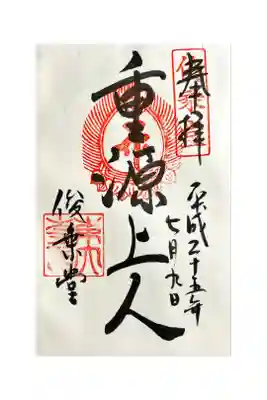 奉拝
平成二十五年
七月九日
重源上人
俊乗堂